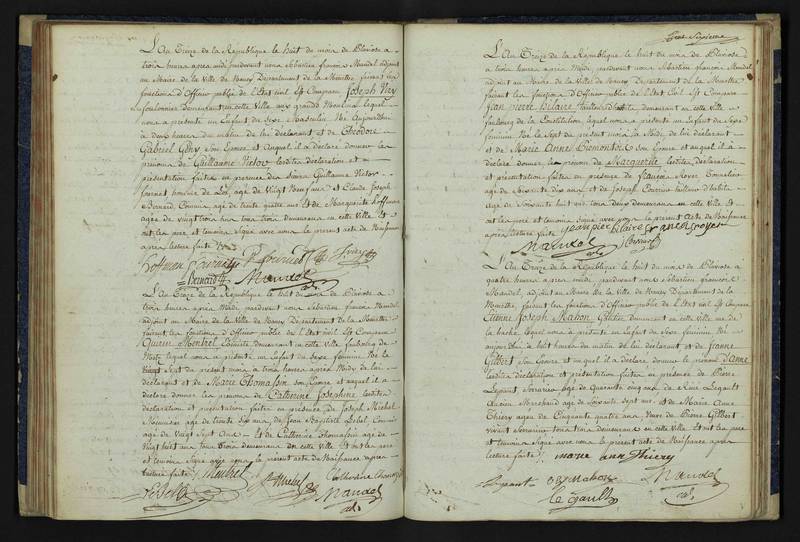 L'An Treize de la République le huit du mois de Pluviose a
trois heures après midi pardevant nous Sébastien françois Mandel adjoint
au Maire de la Ville de Nancy Département de la Meurthe faisant les
fonctions d'Officier public de l'Etat civil Est Comparu Joseph
demeurant en cette Ville aux grands Moulins lequel
nous a présenté un Enfant du Sexe Masculin Né Aujourdhui
a deux heures du matin de lui déclarant et de Théodore
Gabriel son Epouse et Auquel il a déclaré donner les
prénoms de Guillaume Victor lesdites déclaration et
présentation faites en présence des Sieurs Guillaume Victor
homme de Loi agé de Vingt Neuf ans et Claude Joseph
Bernard Commis agé de trente quatre ans Et de Marguerite hoffman
agée de vingt trois ans tous trois demeurans en cette Ville Et
ont les père et témoins signé avec nous le présent acte de Naissance
après lecture faite
hoffman
Bernard Mandel
L'An Treize de la République le huit du mois de Pluviose a
trois heures après midi pardevant nous Sébastien françois Mandel
adjoint au Maire de la Ville de Nancy Département de la Meurthe
faisant les fonctions d'Officier public de l'Etat civil Est Comparu
Mentrel demeurant en cette Ville faubourg de
Metz lequel nous a présenté un Enfant du Sexe féminin Né le
Sept du présent mois a trois heures après Midi de lui
déclarant et de Marie Thomassin son Epouse et auquel il a
déclaré donner les prénoms de Catherine Josephine lesdites
déclaration et présentation faites en présence de Joseph Michel
agé de trente six ans, de Jean Baptiste Lebel, Commis
agé de Vingt Sept Ans Et de Catherine Thomassin agée de
Vingt huit ans tous trois demeurans en cette Ville Et ont les père
et témoins signé avec nous le présent acte de Naissance après
lecture faite Mentrel
Mandel
L'An Treize de la République le huit du mois de Pluviose
a trois heures après Midi pardevant nous Sébastien françois Mandel
adjoint au Maire de la Ville de Nancy Département de la Meurthe
faisant les fonctions d'Officier public de l'Etat Civil Est Comparu
Jean pierre hilaire demeurant en cette Ville
faubourg de la Constitution, lequel nous a présenté un Enfant du Sexe
féminin Né le Sept du présent mois a Midi de lui déclarant
et de Marie Anne son Epouse et auquel il a
déclaré donner le prénom de Marguerite lesdites déclaration
et présentation faites en présence de francois Royer Tonnelier
agé de Soixante dix ans et de Joseph
agé de Soixante huit ans tous deux demeurans en cette Ville Et
ont les père et témoins signé avec nous le présent Acte de Naissance
après lecture faite jean pier hilaire francois royer
Mandel
L'An Treize de la République le huit du mois de Pluviose a
quatre heures après midi pardevant nous Sébastien françois
Mandel, adjoint au Maire de la Ville de Nancy Département de la
Meurthe, faisant les fonctions d'Officier public de l'Etat civil Est Comparu
Etienne Joseph Mahon demeurant en cette Ville rue de
la hache, lequel nous a présenté un Enfant du Sexe féminin Né
aujourdhui a huit heures du matin de lui déclarant et de Jeanne
Gilbert son Epouse et auquel il a déclaré donner le prénom d'Anne
lesdites déclaration et présentation faites en présence de Pierre
agé de Quarante cinq ans de René Legault
Ancien Marchand agé de Soixante sept ans et de Marie Anne
Thiery agée de Cinquante quatre ans Veuve de Pierre Gilbert
vivant tous trois demeurans en cette Ville Et ont les père
et témoins signé avec nous le présent acte de Naissance après
lecture faite marie ann thiery
Mahon Mandel
le gault